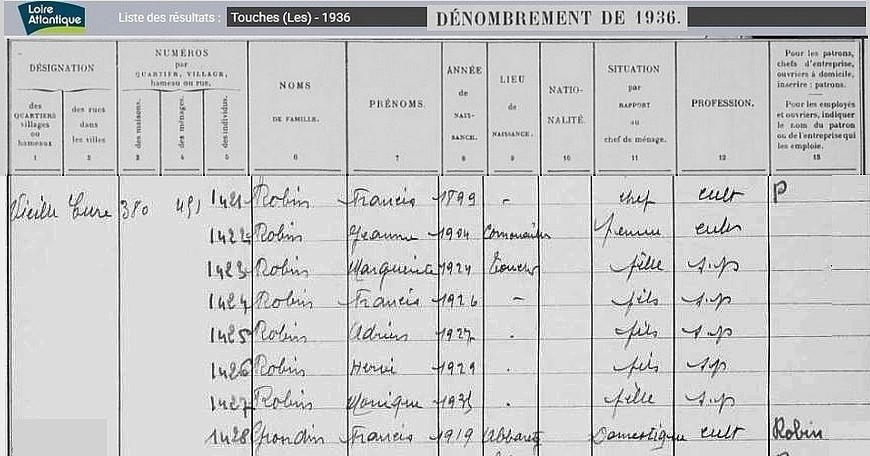 Loire Atlantique
Liste des résultats : Touches (Les) - 1936
DÉNOMBREMENT DE 1936.
DÉSIGNATION
des QUARTIERS villages ou hameaux
1
des rues dans les villes
2
NUMÉROS par QUARTIER, VILLAGE, hameau ou rue.
des maisons.
3
des ménages.
4
des individus.
5
NOMS DE FAMILLE.
6
PRÉNOMS.
7
ANNÉE de NAISSANCE.
8
LIEU de NAISSANCE.
9
NATIONALITÉ.
10
SITUATION par RAPPORT au chef de ménage.
11
PROFESSION.
12
Pour les patrons, chefs d'entreprise, ouvriers à domicile, inscrire : patrons.
Pour les employés et ouvriers, indiquer le nom du patron ou de l'entreprise qui les emploie.
13
Vieille Cure 380 491 1421 Robin Francis 1899 - chef cult P
1422 Robin Jeanne 1904 femme cult
1423 Robin Marguerite 1924 Touches fille s.p
1424 Robin Francis 1926 - fils s.p
1425 Robin Adrien 1927 . fils s.p
1426 Robin Hervé 1929 . fils s.p
1427 Robin Monique 1935 . fille s.p
1428 Grondin Francis 1919 Abbaretz Domestique cult Robin